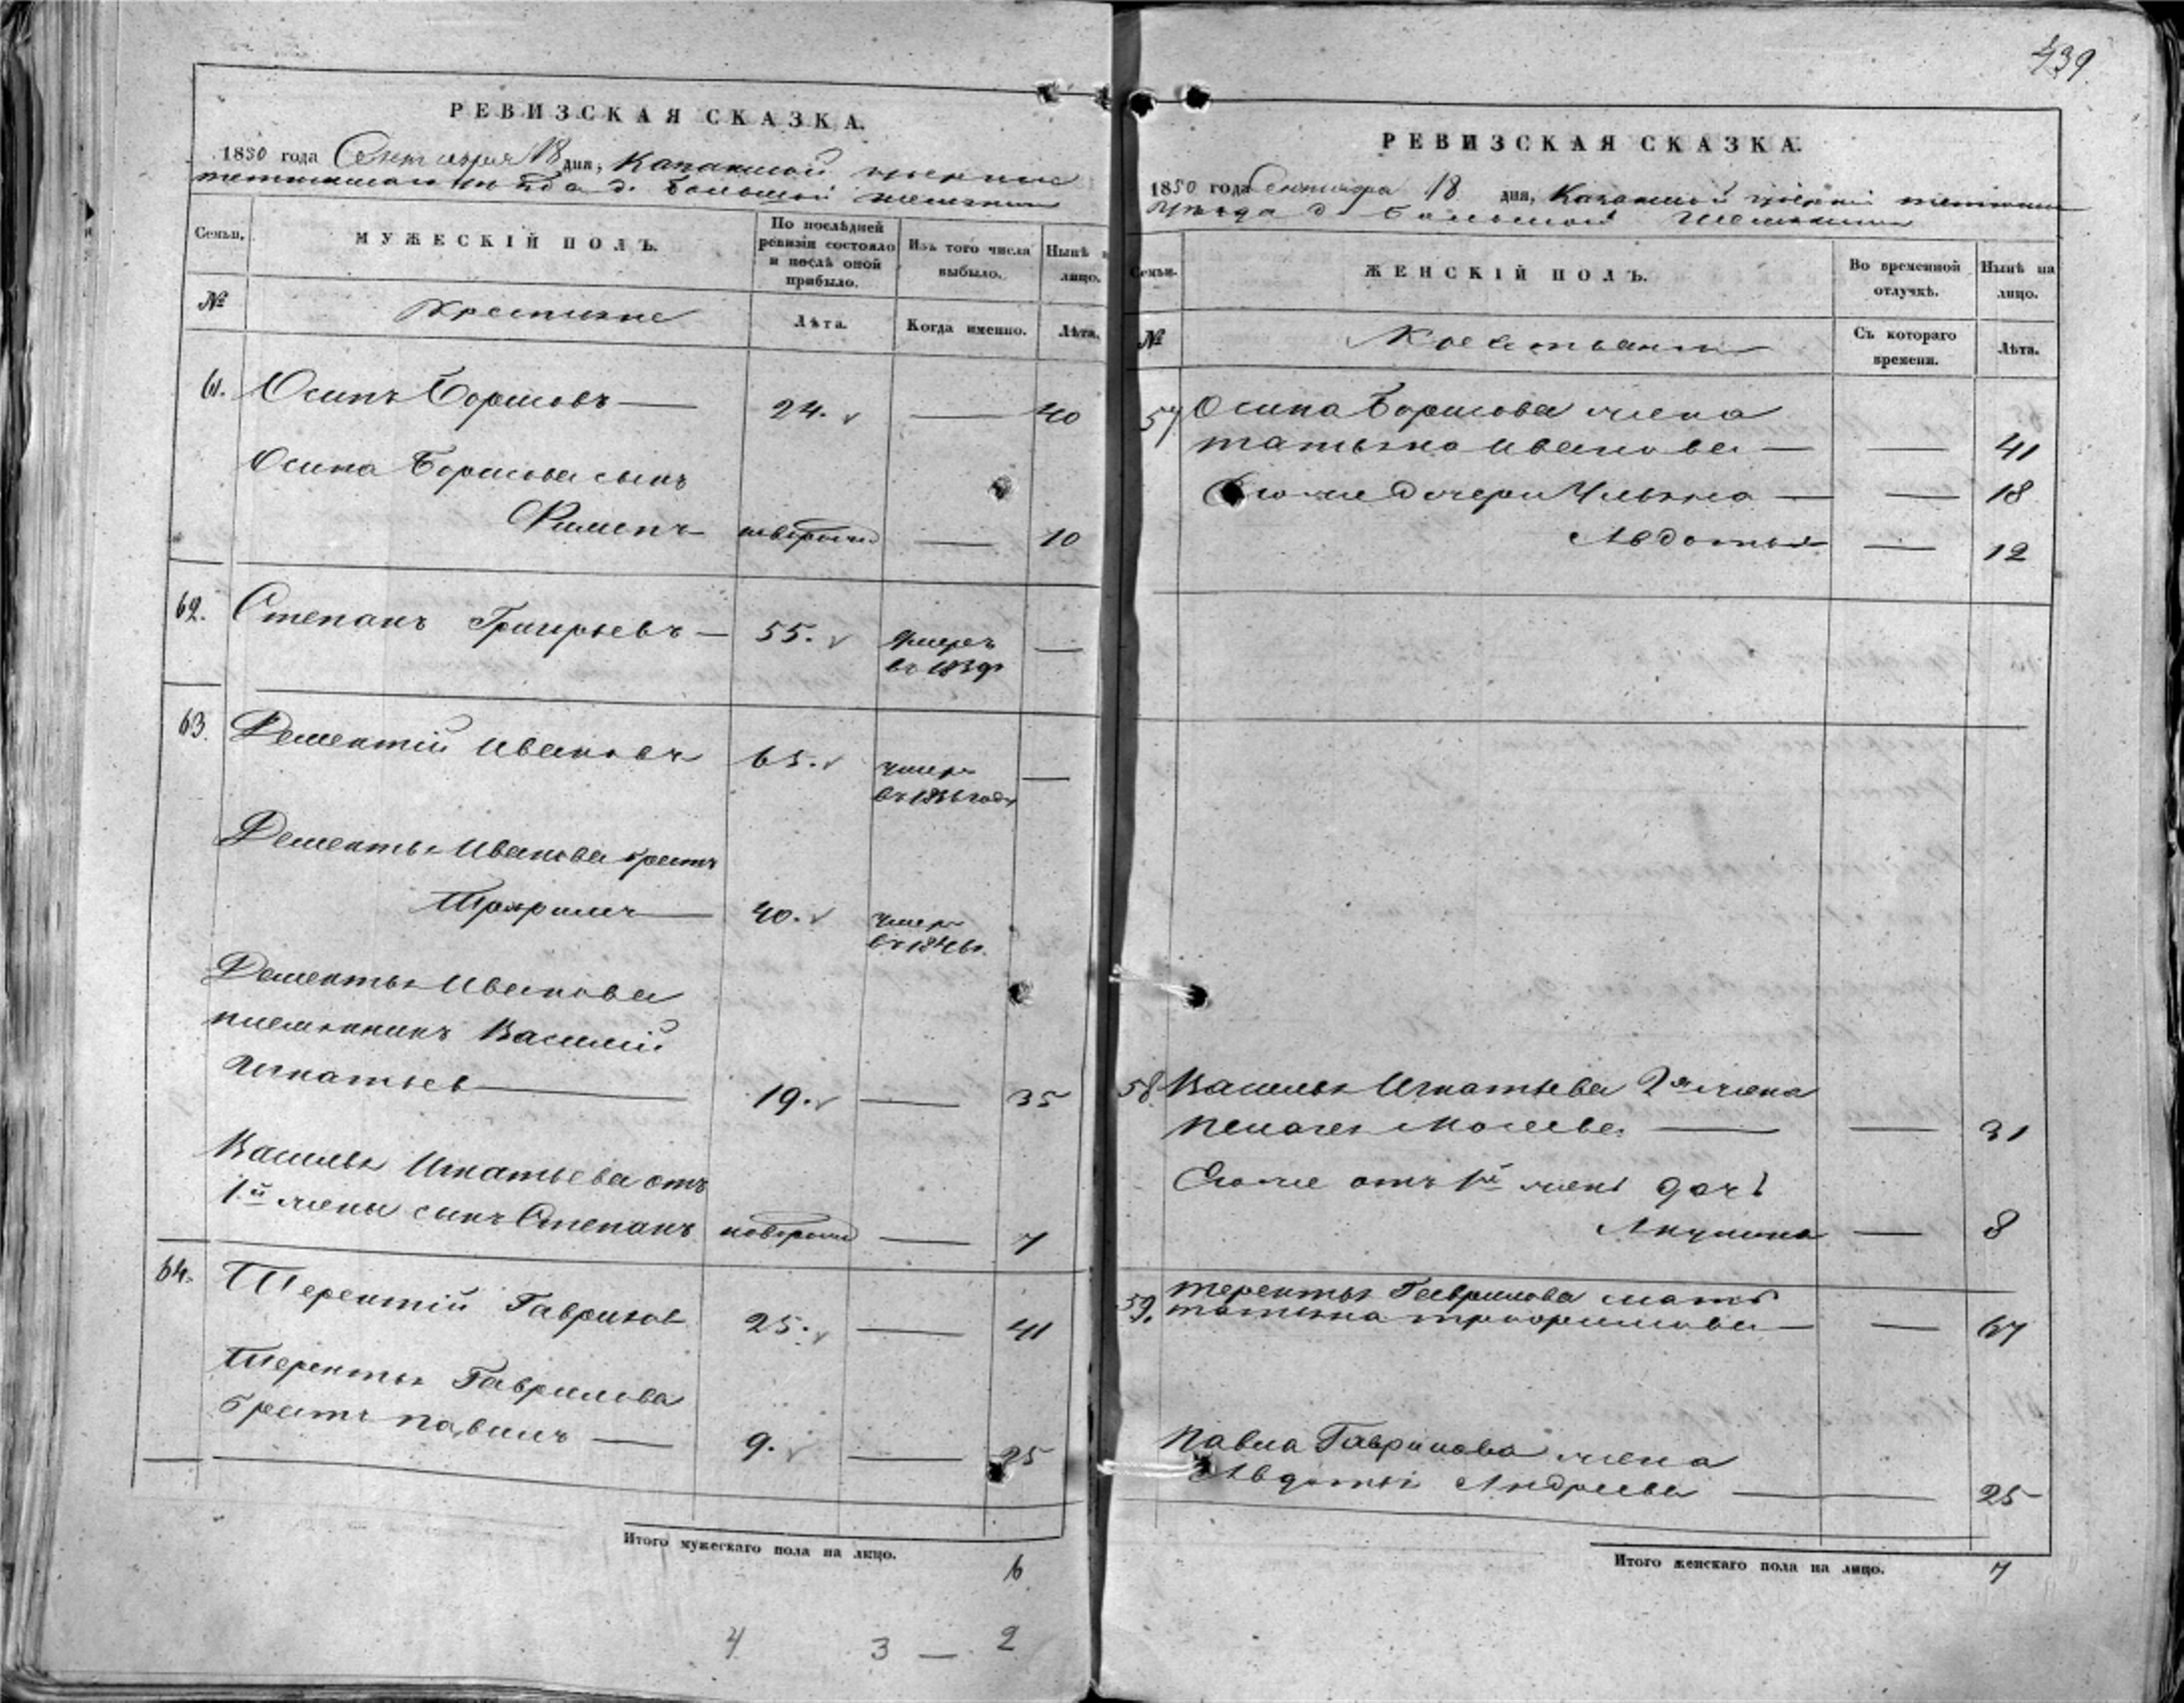 РЕВИЗСКАЯ СКАЗКА.
1850 года Сентября 18 дня, Казанской губернии
уѣзда д. Большой
Семьи.
МУЖЕСКІЙ ПОЛЪ.
По послѣдней ревизіи состояло и послѣ оной прибыло.
Изъ того числа выбыло.
Нынѣ
лицо.
№
Крестьяне
Лѣта.
Когда именно.
Лѣта.
61. Осипъ Борисовъ — 24. — 40
Осипа Борисова сынъ
Филипъ новорожд — 10
62. Степанъ Григорьевъ — 55. умеръ —
въ 1839
63. Дементій Ивановъ 65. умеръ —
въ 1836 году
Дементья Иванова братъ
Трофимъ — 40. умеръ
въ 1846 г.
Дементья Иванова
племянникъ Василій
Игнатьев — 19. — 35
Василья Игнатьева отъ
1й жены сынъ Степанъ новорожд — 7
64. Терентій Гаврилов 25. — 41
Терентья Гаврилова
братъ Павилъ — 9. — 25
Итого мужескаго пола на лицо. 6
4 3 — 2
439
РЕВИЗСКАЯ СКАЗКА.
1850 года Сентября 18 дня, Казанской губерніи
уѣзда д Большой
Семьи.
ЖЕНСКІЙ ПОЛЪ.
Во временной отлучкѣ.
Нынѣ на лицо.
№
Съ котораго времени.
Лѣта.
57 Осипа Борисова жена
Татьяна Иванова — — 41
Его же дочери Ульяна — — 18
Авдотья — — 12
58 Василья Игнатьева 2я жена
Пелагея Мосеева — — 31
Его же отъ 1й жены дочь
Акулина — 8
59. Терентья Гаврилова мать
Татьяна Трофимова — — 67
Павла Гаврилова жена
Авдотья Андреева — — 25
Итого женскаго пола на лицо. 7